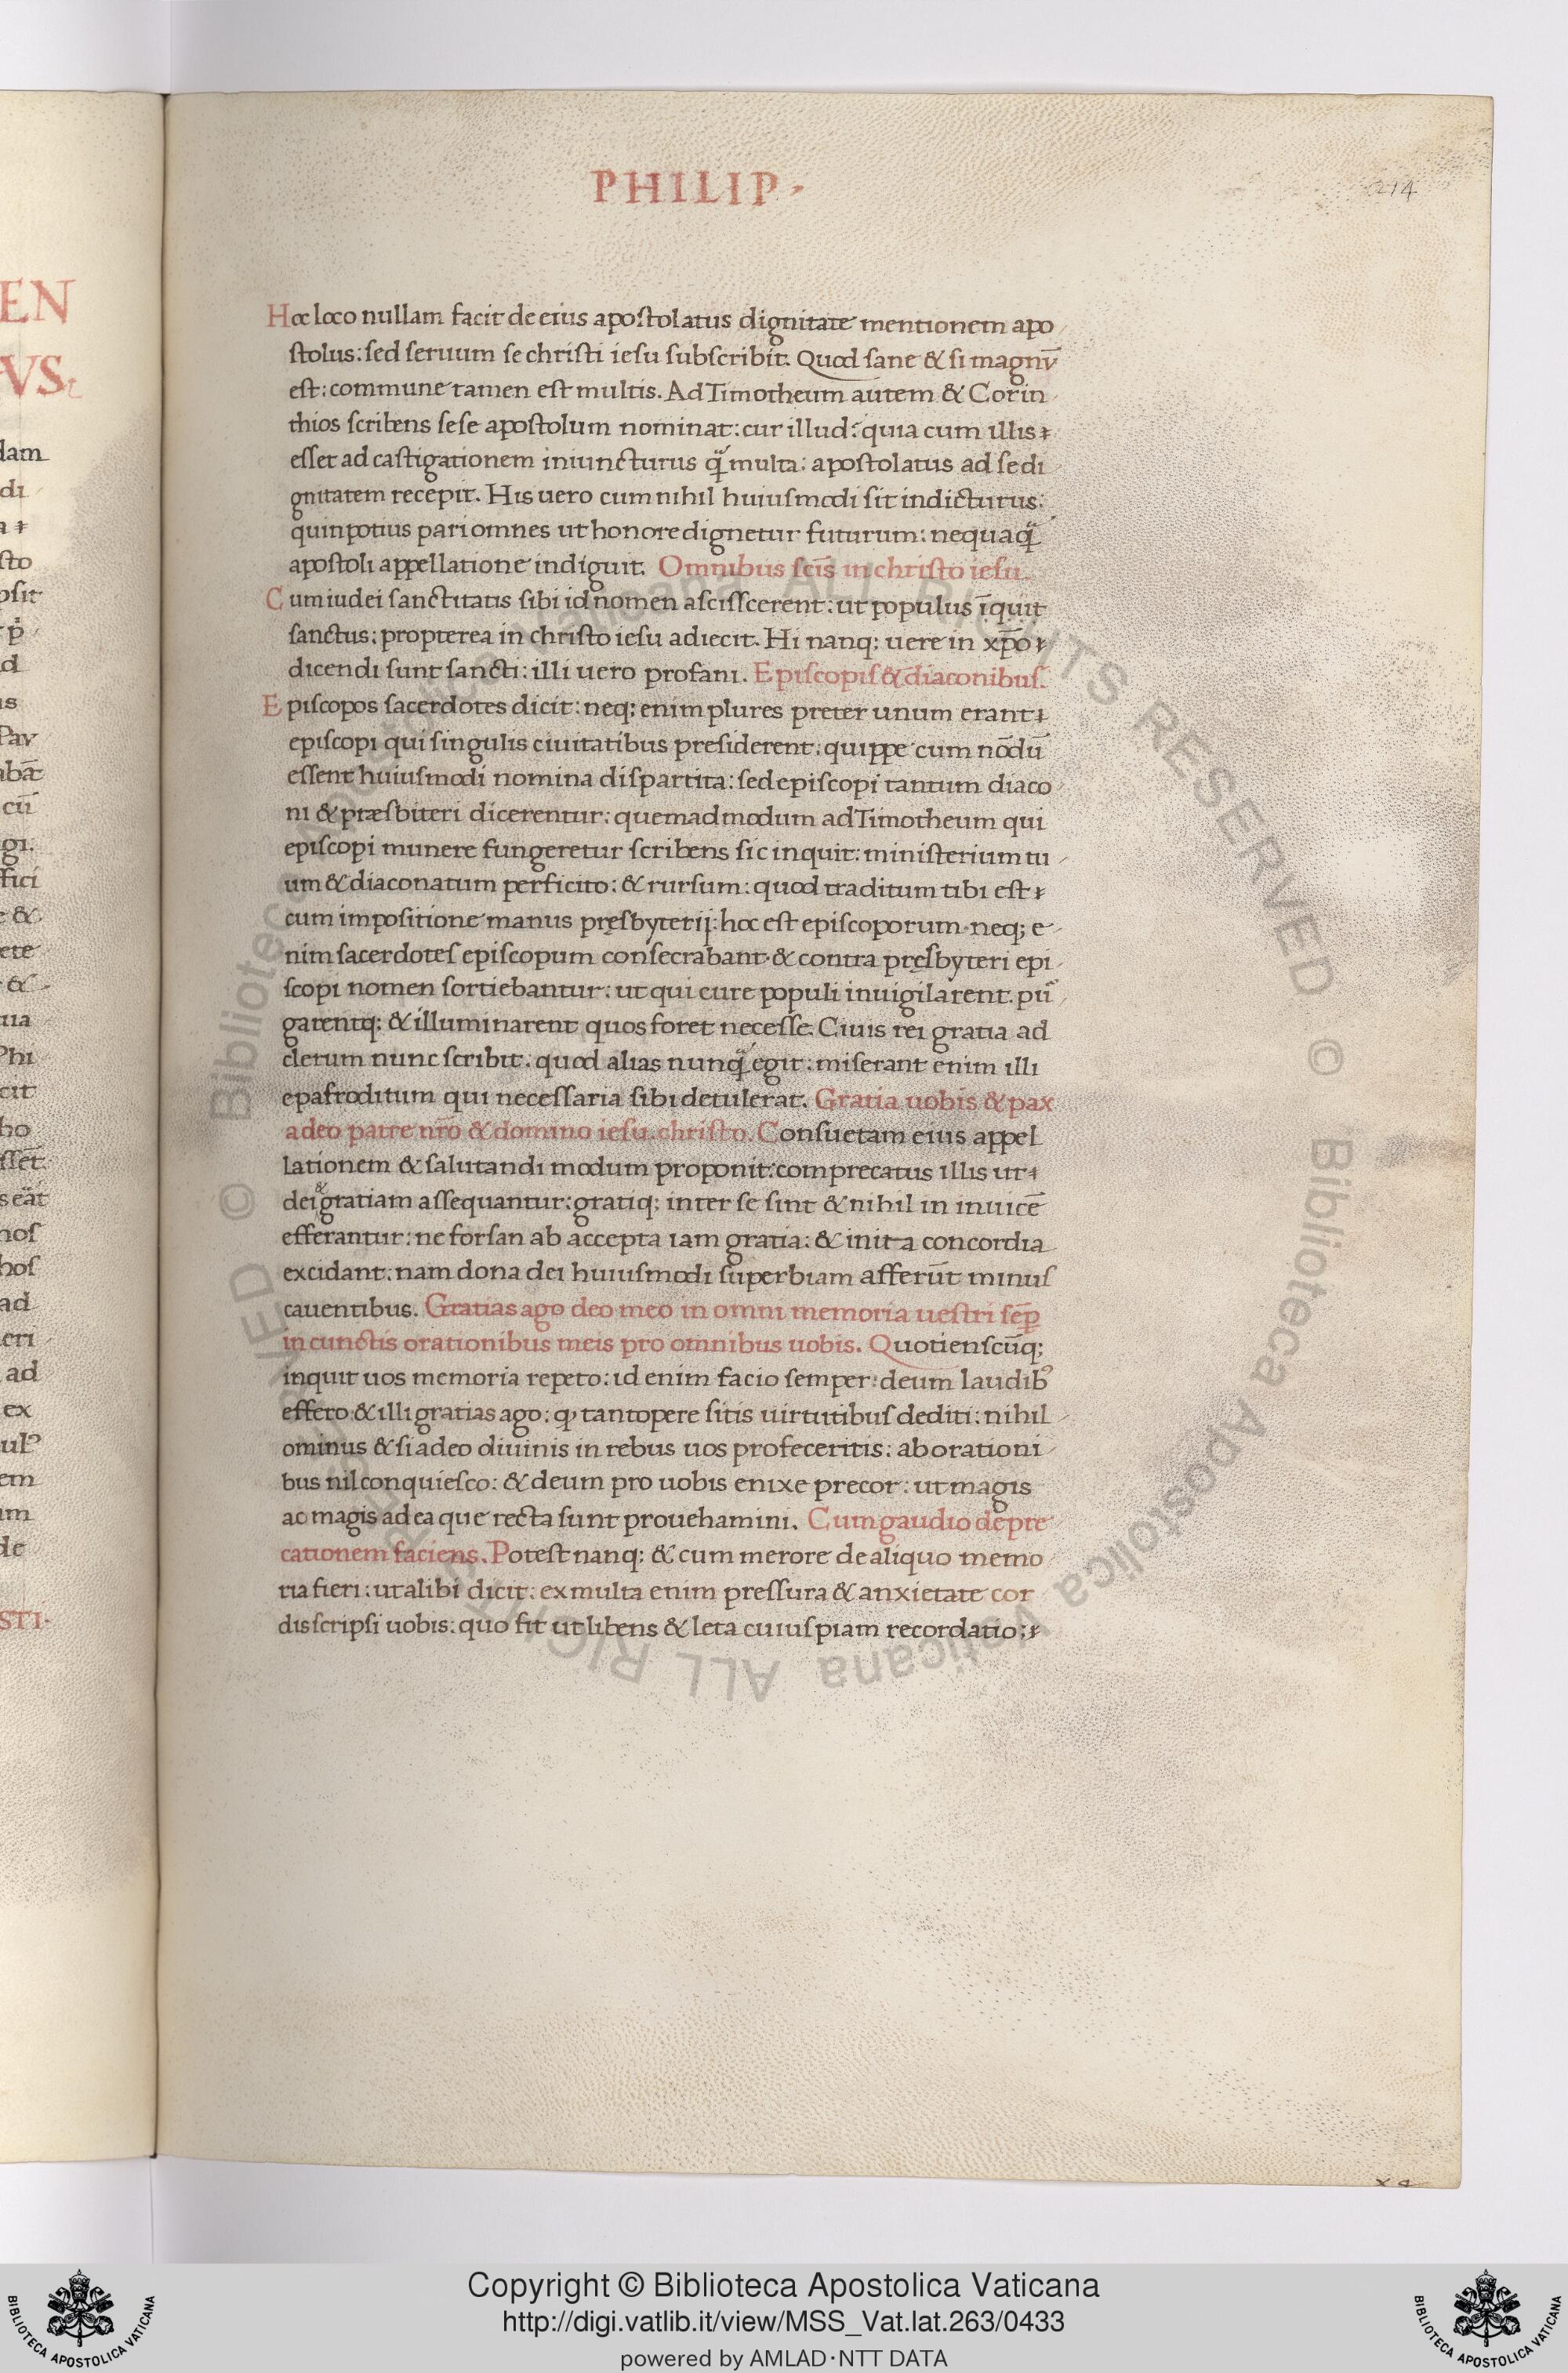 PHILIP.
214
Hoc loco nullam facit de eius apostolatus dignitate mentionem apo
stolus: sed seruum se christi iesu subscribit. Quod sane & si magnū
est: commune tamen est multis. Ad Timotheum autem & Corin
thios scribens sese apostolum nominat: cur illud? quia cum illis
esset ad castigationem iniuncturus q̃ multa: apostolatus ad se di
gnitatem recepit. His uero cum nihil huiusmodi sit indicturus:
quin potius pari omnes ut honore dignetur futurum: nequaq̃
apostoli appellatione indiguit. Omnibus sc̄is in christo iesu.
Cum iudei sanctitatis sibi id nomen asciscerent: ut populus īquit
sanctus: propterea in christo iesu adiecit. Hi nanq; uere in xp̄o
dicendi sunt sancti: illi uero profani. Episcopis & diaconibus.
Episcopos sacerdotes dicit: neq; enim plures preter unum erant
episcopi qui singulis ciuitatibus presiderent: quippe cum nōdū
essent huiusmodi nomina dispartita: sed episcopi tantum diaco
ni & præsbiteri dicerentur: quemadmodum ad Timotheum qui
episcopi munere fungeretur scribens sic inquit: ministerium tu
um & diaconatum perficito: & rursum: quod traditum tibi est
cum impositione manus pręsbyterij: hoc est episcoporum. neq; e
nim sacerdotes episcopum consecrabant. & contra pręsbyteri epi
scopi nomen sortiebantur: ut qui cure populi inuigilarent. pur
garentq; & illuminarent quos foret necesse. Ciuis rei gratia ad
clerum nunc scribit: quod alias nunq̃ egit: miserant enim illi
epafroditum qui necessaria sibi detulerat. Gratia uobis & pax
a deo patre nr̄o & domino iesu christo. Consuetam eius appel
lationem & salutandi modum proponit: comprecatus illis ut
dei & gratiam assequantur: gratiq; inter se sint & nihil in inuicē
efferantur: ne forsan ab accepta iam gratia: & inita concordia
excidant: nam dona dei huiusmodi superbiam afferūt minus
cauentibus. Gratias ago deo meo in omni memoria uestri sēp
in cunctis orationibus meis pro omnibus uobis. Quotienscūq;
inquit uos memoria repeto: id enim facio semper: deum laudibꝰ
effero & illi gratias ago: ꝙ tantopere sitis uirtutibus dediti: nihil
ominus & si adeo diuinis in rebus uos profeceritis: ab orationi
bus nil conquiesco: & deum pro uobis enixe precor: ut magis
ac magis ad ea que recta sunt prouehamini. Cum gaudio depre
cationem faciens. Potest nanq; & cum merore de aliquo memo
ria fieri: ut alibi dicit: ex multa enim pressura & anxietate cor
dis scripsi uobis: quo fit ut libens & leta cuiuspiam recordatio:
Copyright © Biblioteca Apostolica Vaticana
http://digi.vatlib.it/view/MSS_Vat.lat.263/0433
powered by AMLAD·NTT DATA